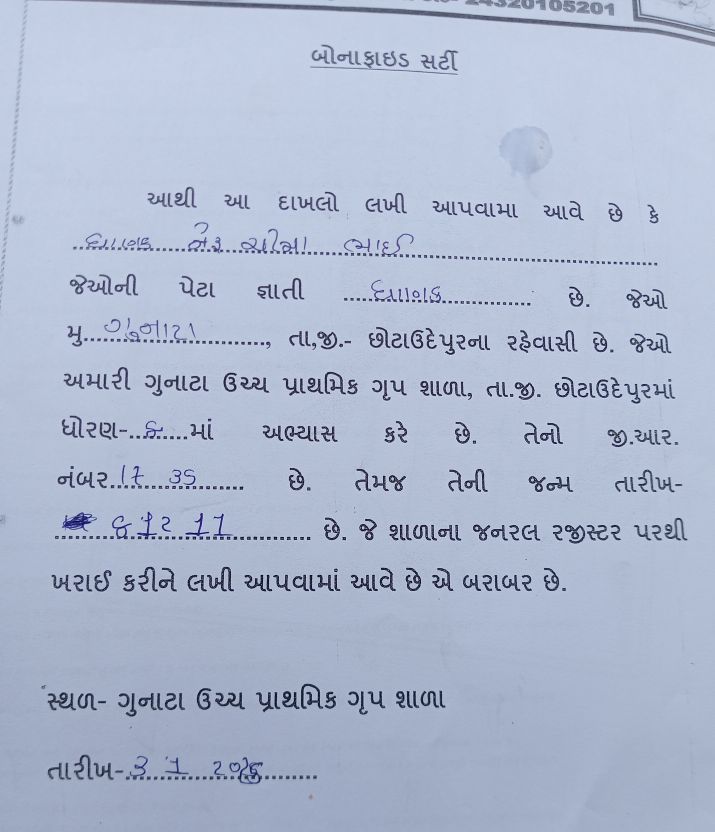 24320105201
બોનાફાઇડ સર્ટી
આથી આ દાખલો લખી આપવામા આવે છે કે
ભાઈ
જેઓની પેટા જ્ઞાતી ........................ છે. જેઓ
મુ. ગુનાટા, તા,જી.- છોટાઉદેપુરના રહેવાસી છે. જેઓ
અમારી ગુનાટા ઉચ્ચ પ્રાથમિક ગૃપ શાળા, તા.જી. છોટાઉદેપુરમાં
ધોરણ-..........માં અભ્યાસ કરે છે. તેનો જી.આર.
નંબર 17 35 છે. તેમજ તેની જન્મ તારીખ-
છે. જે શાળાના જનરલ રજીસ્ટર પરથી
ખરાઈ કરીને લખી આપવામાં આવે છે એ બરાબર છે.
સ્થળ- ગુનાટા ઉચ્ચ પ્રાથમિક ગૃપ શાળા
તારીખ- 3 1